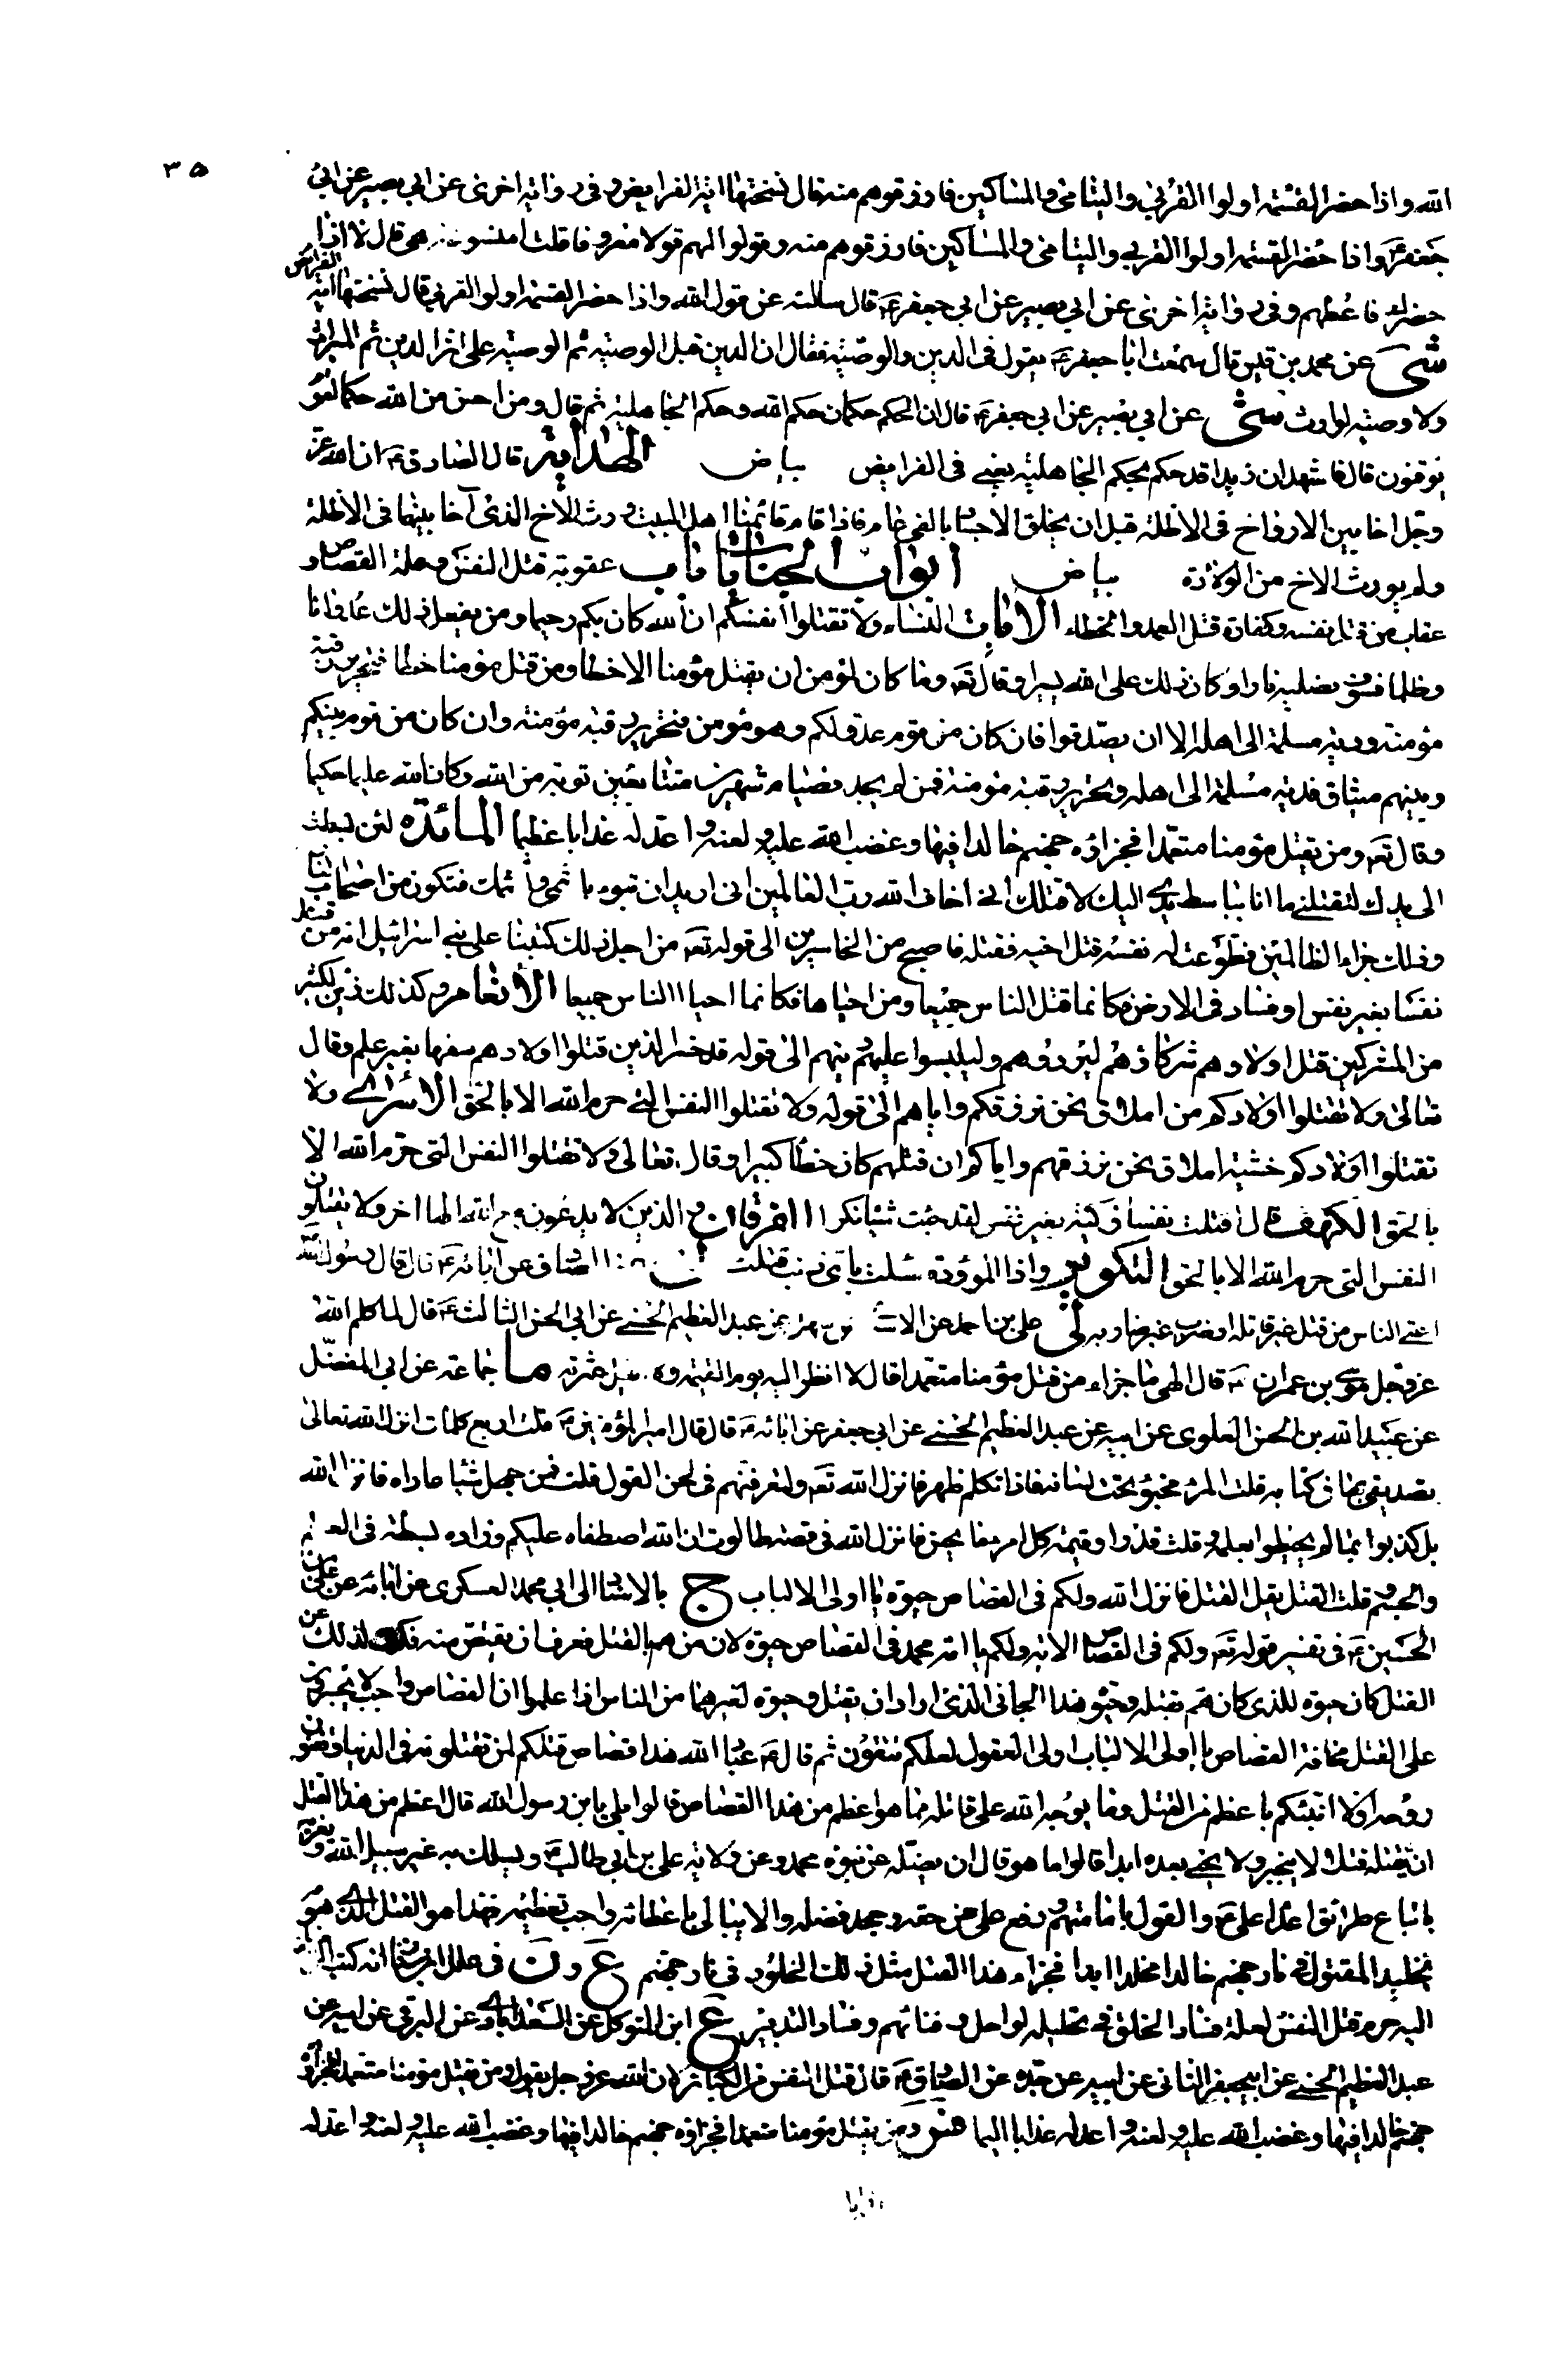 ٣٥
الله واذا حضر القسمة اولوا القربى واليتامى والمساكين فارزقوهم منه قال نسختها اية الفرايض وفى رواية اخرى عن ابى بصير عن ابى
جعفر ع واذا حضر القسمة اولوا القربى واليتامى والمساكين فارزقوهم منه وقولوا لهم قولا معروفا قلت امنسوخة هى قال لا اذا
حضرك فاعطهم وفى رواية اخرى عن ابى بصير عن ابى جعفر ع قال سالته عن قول الله واذا حضر القسمة اولوا القربى قال نسختها اية الفرايض
شى عن محمد بن قيس قال سمعت ابا جعفر ع يقول فى الدين والوصية فقال ان الدين قبل الوصية ثم الوصية على اثر الدين ثم الميراث
ولا وصية لوارث شى عن ابى بصير عن ابى جعفر ع قال ان الحكم حكمان حكم الله وحكم الجاهلية ثم قال ومن احسن من الله حكما لقوم
يوقنون قال فاشهد ان زيدا قد حكم بحكم الجاهلية يعنى فى الفرايض بياض الهداية قال الصادق ع ان الله عز
وجل اخا بين الارواح فى الاظلة قبل ان يخلق الاجساد بالفى عام فاذا قام قائمنا اهل البيت ورث الاخ الذى آخا بينهما فى الاظلة
ولم يورث الاخ من الولادة بياض ابواب الجنايات باب عقوبة قتل النفس وعلة القصاص و
عقاب من قتل نفسه وكفارة قتل العمد والخطاء الايات النساء ولا تقتلوا انفسكم ان الله كان بكم رحيما ومن يفعل ذلك عدوانا
وظلما فسوف نصليه نارا وكان ذلك على الله يسيرا وقال تع وما كان لمؤمن ان يقتل مؤمنا الا خطا ومن قتل مؤمنا خطا فتحرير رقبة
مؤمنة ودية مسلمة الى اهله الا ان يصدقوا فان كان من قوم عدو لكم وهو مؤمن فتحرير رقبة مؤمنة وان كان من قوم بينكم
وبينهم ميثاق فدية مسلمة الى اهله وتحرير رقبة مؤمنة فمن لم يجد فصيام شهرين متتابعين توبة من الله وكان الله عليما حكيما
وقال تع ومن يقتل مؤمنا متعمدا فجزاؤه جهنم خالدا فيها وغضب الله عليه ولعنه واعد له عذابا عظيما المائدة لئن بسطت
الى يدك لتقتلنى ما انا بباسط يدى اليك لاقتلك انى اخاف الله رب العالمين انى اريد ان تبوء باثمى واثمك فتكون من اصحاب النار
وذلك جزاء الظالمين فطوعت له نفسه قتل اخيه فقتله فاصبح من الخاسرين الى قوله تع من اجل ذلك كتبنا على بنى اسرائيل انه من قتل
نفسا بغير نفس او فساد فى الارض فكانما قتل الناس جميعا ومن احياها فكانما احيا الناس جميعا الانعام وكذلك زين لكثير
من المشركين قتل اولادهم شركاؤهم ليردوهم وليلبسوا عليهم دينهم الى قوله قد خسر الذين قتلوا اولادهم سفها بغير علم وقال
تعالى ولا تقتلوا اولادكم من املاق نحن نرزقكم واياهم الى قوله ولا تقتلوا النفس التى حرم الله الا بالحق الاسرى ولا
تقتلوا اولادكم خشية املاق نحن نرزقهم واياكم ان قتلهم كان خطأ كبيرا وقال تعالى ولا تقتلوا النفس التى حرم الله الا
بالحق الكهف قال اقتلت نفسا زكية بغير نفس لقد جئت شيئا نكرا الفرقان والذين لا يدعون مع الله الها اخر ولا يقتلون
النفس التى حرم الله الا بالحق التكوير واذا الموؤدة سئلت باى ذنب قتلت عن ابائه ع قال قال رسول الله
اعتى الناس من قتل غير قاتله او ضرب غير ضاربه لى على بن احمد عن عن عبد العظيم الحسنى عن ابى الحسن الثالث ع قال لما كلم الله
عز وجل موسى بن عمران ع قال الهى ما جزاء من قتل مؤمنا متعمدا قال لا انظر اليه يوم القيمة ولا عثرته ما جماعة عن ابى المفضل
عن عبيد الله بن الحسن العلوى عن ابيه عن عبد العظيم الحسنى عن ابى جعفر عن ابائه ع قال قال امير المؤمنين ع قلت اربع كلمات انزل الله تعالى
بتصديقى بها فى كتابه قلت المرء مخبوء تحت لسانه فاذا تكلم ظهر فانزل الله تع ولتعرفنهم فى لحن القول قلت فمن جهل شيئا عاداه فانزل الله
بل كذبوا بما لم يحيطوا بعلمه وقلت قدر او قيمة كل امرء ما يحسن فانزل الله فى قصة طالوت ان الله اصطفاه عليكم وزاده بسطة فى العلم
والجسم قلت القتل يقل القتل فانزل الله ولكم فى القصاص حيوة يا اولى الالباب ج بالاسناد الى ابى محمد العسكرى عن ابائه عن على بن
الحسين ع فى تفسير قوله تع ولكم فى القصاص الاية ولكم يا امة محمد فى القصاص حيوة لان من هم بالقتل فعرف ان يقتص منه فكف لذلك عن
القتل كان حيوة للذى كان هم بقتله وحيوة لهذا الجانى الذى اراد ان يقتل وحيوة لغيرهما من الناس اذا علموا ان القصاص واجب لا يجسرون
على القتل مخافة القصاص يا اولى الالباب اولى العقول لعلكم تتقون ثم قال ع عباد الله هذا قصاص قتلكم لمن تقتلونه فى الدنيا وتفنون
روحه اولا انبئكم باعظم من القتل وما يوجبه الله على قاتله مما هو اعظم من هذا القصاص قالوا بلى يابن رسول الله قال اعظم من هذا القتل
ان يقتله قتلا لا ينجبر ولا يحيى بعده ابدا قالوا ما هو قال ان يضله عن نبوة محمد وعن ولاية على بن ابى طالب ع ويسلك به غير سبيل الله ويغريه
باتباع طرائق اعداء على ع والقول بامامتهم ودفع على عن حقه وجحد فضله والا يبالى باعطائه واجب تعظيمه فهذا هو القتل الذى هو
تخليد المقتول فى نار جهنم خالدا مخلدا ابدا فجزاء هذا القتل مثل ذلك الخلود فى نار جهنم ع ون فى علل انه كتب
اليه حرم قتل النفس لعلة فساد الخلق فى تحليله لو احل وفنائهم وفساد التدبير ع ابن المتوكل عن السعدابادى عن البرقى عن
عبد العظيم الحسنى عن ابى جعفر الثانى عن ابيه عن جده عن الصادق ع قال قتل النفس من الكبائر لان الله عز وجل يقول ومن يقتل مؤمنا متعمدا فجزاؤه
جهنم خالدا فيها وغضب الله عليه ولعنه واعد له عذابا اليما ومن يقتل مؤمنا متعمدا فجزاؤه جهنم خالدا فيها وغضب الله عليه ولعنه واعد له